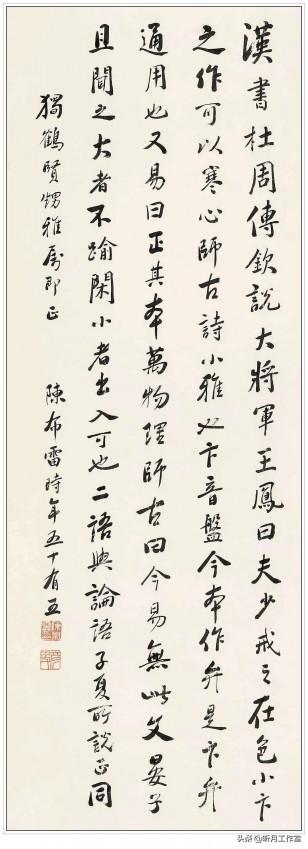 漢書杜周傳欽說大將軍王鳳曰夫少戒之在色小卞
之作可以寒心師古詩小雅也卞音盤今本作弁是卞弁
通用也又易曰正其本萬物理師古曰今易無此文晏子
且聞之大者不踰閑小者出入可也二語與論語子夏所說正同
獨鶴賢甥雅屬即正
陳布雷時年五十有五
头条@昕月工作室